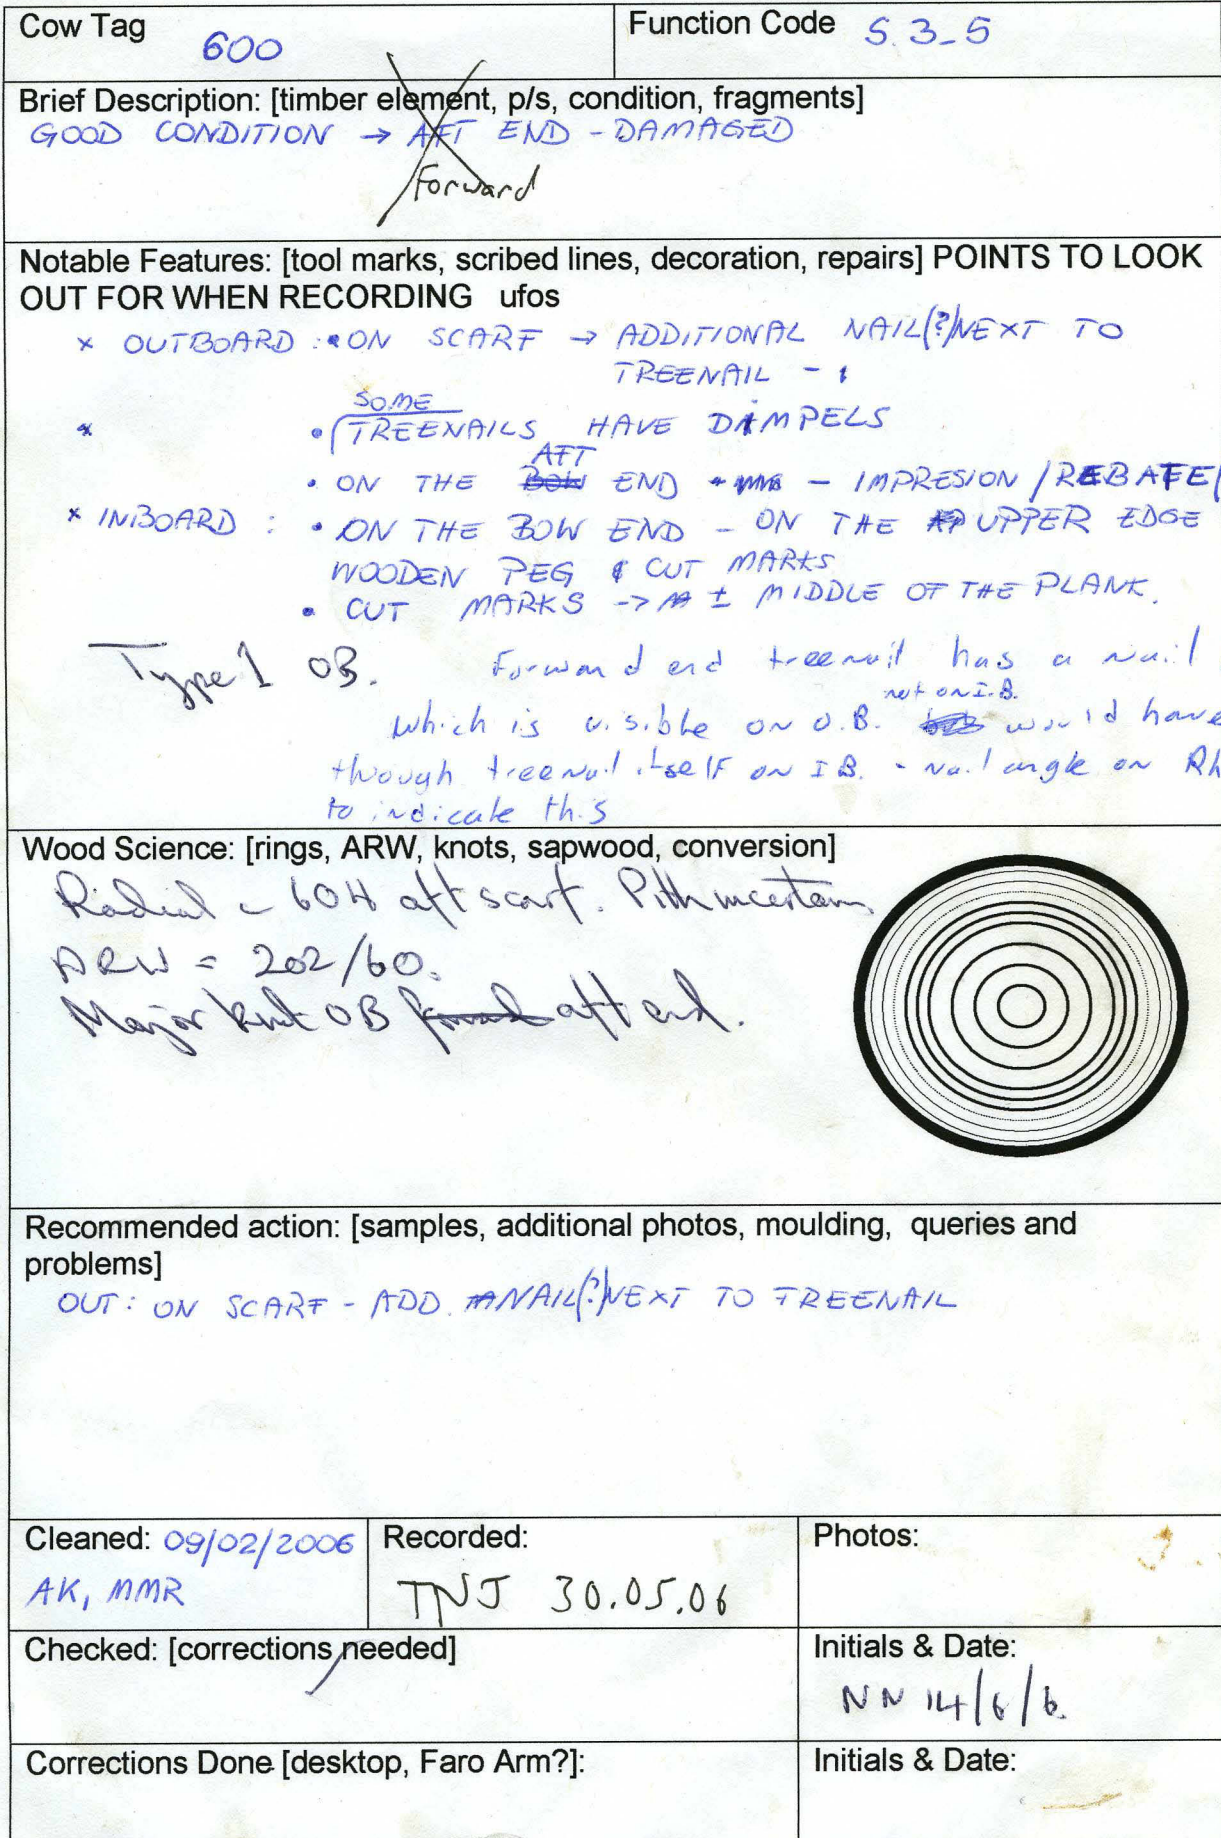 Cow Tag 600
Function Code S.3_5
Brief Description: [timber element, p/s, condition, fragments]
GOOD CONDITION → AFT END - DAMAGED
Forward
Notable Features: [tool marks, scribed lines, decoration, repairs] POINTS TO LOOK
OUT FOR WHEN RECORDING ufos
x OUTBOARD : • ON SCARF → ADDITIONAL NAIL(?) NEXT TO
TREENAIL - 1
SOME
x • TREENAILS HAVE DIMPELS
AFT
• ON THE BOW END - IMPRESION / REBATE/
x INBOARD : • ON THE BOW END - ON THE UPPER EDGE
WOODEN PEG & CUT MARKS
• CUT MARKS -> ± MIDDLE OF THE PLANK.
Type 1 OB. Forward end treenail has a nail
not on I.B.
which is visible on O.B. would have
through treenail itself on I B. - nail angle on Rh
to indicate this
Wood Science: [rings, ARW, knots, sapwood, conversion]
Radial - 60H aft scarf. Pith uncertain
ARW = 202/60.
Major knot OB aft end.
Recommended action: [samples, additional photos, moulding, queries and
problems]
OUT: ON SCARF - ADD. NAIL(?) NEXT TO TREENAIL
Cleaned: 09/02/2006
AK, MMR
Recorded:
TNJ 30.05.06
Photos:
Checked: [corrections needed]
Initials & Date:
NN 14/6/6.
Corrections Done [desktop, Faro Arm?]:
Initials & Date: